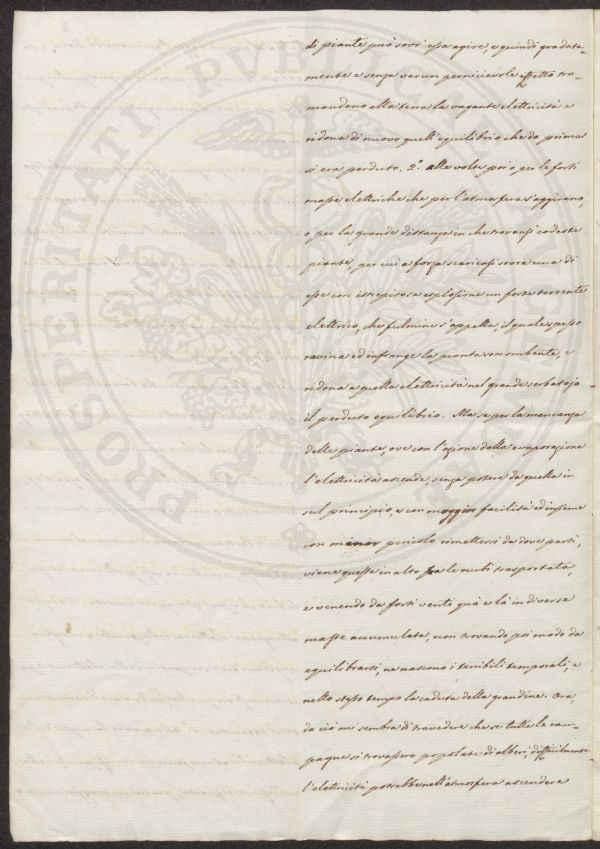 di piante può sovr' essa agire, e quindi gradata-
mente e senza verun pernicievole effetto tra-
mandano alla terra la vagante elettricità e
ridona di nuovo quell'equilibrio che da prima
si era perduto. 2.° alle volte poi o per le forti
masse elettriche che per l'atmosfera s'aggirano,
o per la grande distanza in che trovansi codeste
piante, per cui a forza scaricasi sovra una di
esse con istrepitosa esplosione un forte torrente
elettrico, che fulmine s'appella, il quale spesso
rovina ed infrange la pianta soccombente, e
ridona a quella elettricità nel grande serbatojo
il perduto equilibrio. Ma se per la mancanza
delle piante, ove con l'azione della evaporazione
l'elettricità ascende, senza potere da quella in
sul principio, e con maggior facilità ed insieme
con minor pericolo rimettersi da dove partì,
viene questa in alto fra le nubi trasportata,
e venendo da forti venti quà e là in diverse
masse accumulata, non trovando poi modo da
equilibrarsi, ne nascono i terribili temporali, e
nello stesso tempo la caduta della grandine. Ora,
da ciò mi sembra di travedere che se tutte le cam-
pagne si trovassero popolate di alberi, difficilmente
l'elettricità potrebbe nell'atmosfera ascendere
PROSPERITATI PUBLICAE